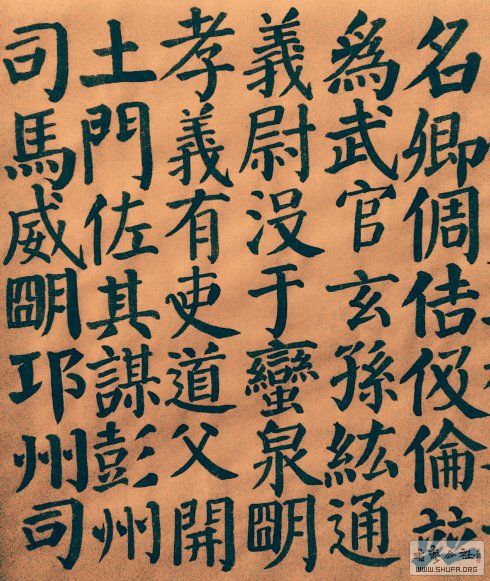 名卿倜佶伋倫
爲武官玄孫紘通
義尉没于蠻泉朙
孝義有吏道父開
土門佐其謀彭州
司馬威朙邛州司
WWW.SHUFA.ORG